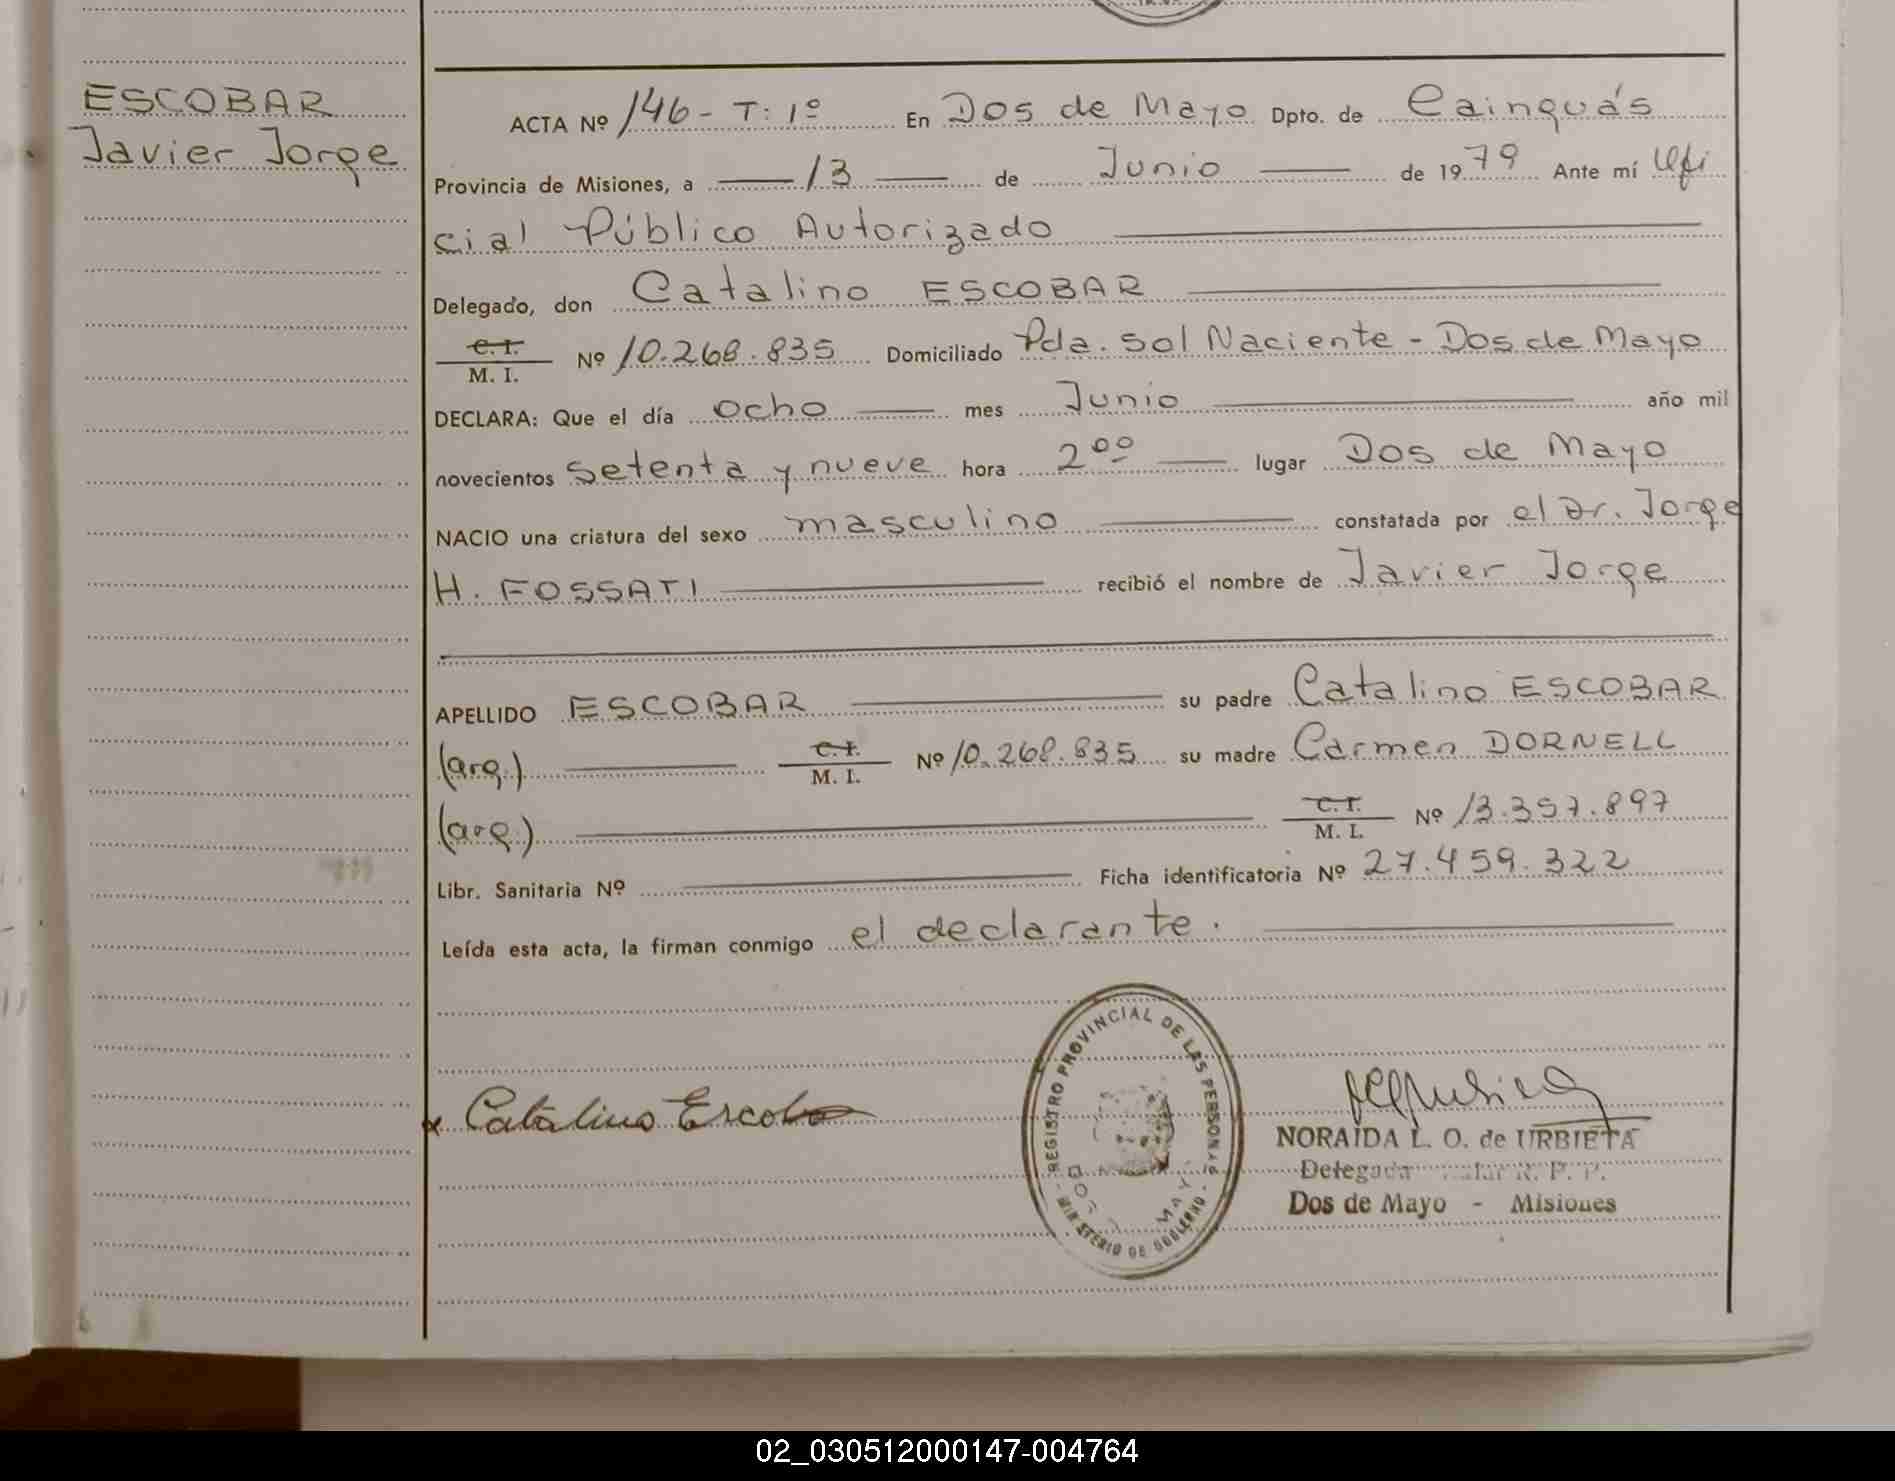 ESCOBAR
Javier Jorge
ACTA Nº 146 - T: 1º En Dos de Mayo Dpto. de Cainguás
Provincia de Misiones, a 13 de Junio de 1979 Ante mí Ofi
cial Público Autorizado
Delegado, don Catalino ESCOBAR
C.I. M. I. Nº 10.268.835 Domiciliado Pda. Sol Naciente - Dos de Mayo
DECLARA: Que el día ocho mes Junio año mil
novecientos setenta y nueve hora 2ºº lugar Dos de Mayo
NACIO una criatura del sexo masculino constatada por el Dr. Jorge
H. FOSSATI recibió el nombre de Javier Jorge
APELLIDO ESCOBAR su padre Catalino ESCOBAR
(arg.) C.I. M. I. Nº 10.268.835 su madre Carmen DORNELL
(arg.) C.I. M. I. Nº 13.357.897
Libr. Sanitaria Nº Ficha identificatoria Nº 27.459.322
Leída esta acta, la firman conmigo el declarante.
x Catalino Escobar
REGISTRO PROVINCIAL DE LAS PERSONAS
DOS MAYO
MINISTERIO DE GOBIERNO
NORAIDA L. O. de URBIETA
Delegada R. P. P.
Dos de Mayo - Misiones
02_030512000147-004764